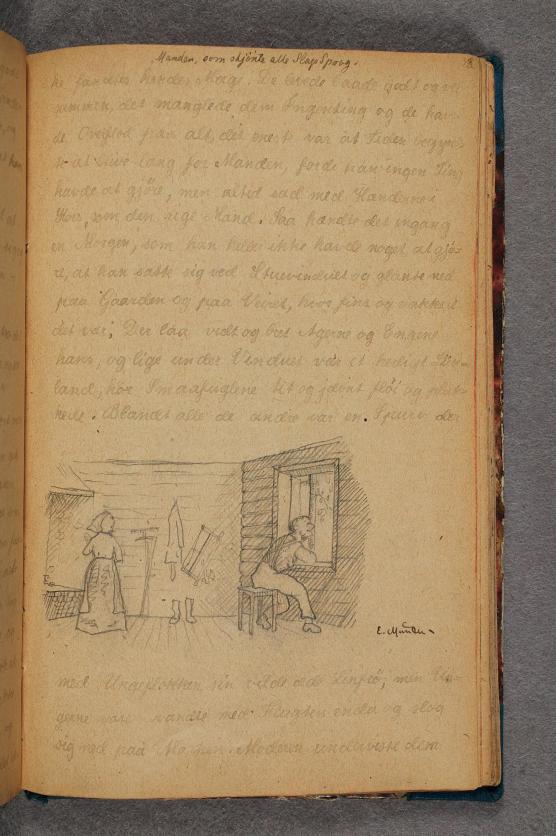 Manden, som skjönte alle Slags Sprog.
De levede baade godt og vel
sammen, det manglede dem Ingenting og de hav-
de Overflod paa alt, det eneste var at Tiden begyn
te at blive lang for Manden, fordi han ingen Ting
havde at gjöre, men altid sad med Hænderne i
som den rige Mand. Saa hændte det engang
en Morgen, som han heller ikke havde noget at gjö-
re, at han satte sig ved Stuevinduet og glante ned
paa Gaarden og paa Veiret, hvor fint og vakkert
det var; Der laa vidt og bret Agerne og Engene
hans, og lige under Vinduet var et
land, hvor Smaafuglene tit og jevnt flöi og
Blandt alle de andre var en Spurv der
E. Munch
med Ungeflokken sin vilde æde Linfrö, men Un-
gerne vare vandte med Flugten enda og slog
sig ned paa Marken. Moderen underviste dem